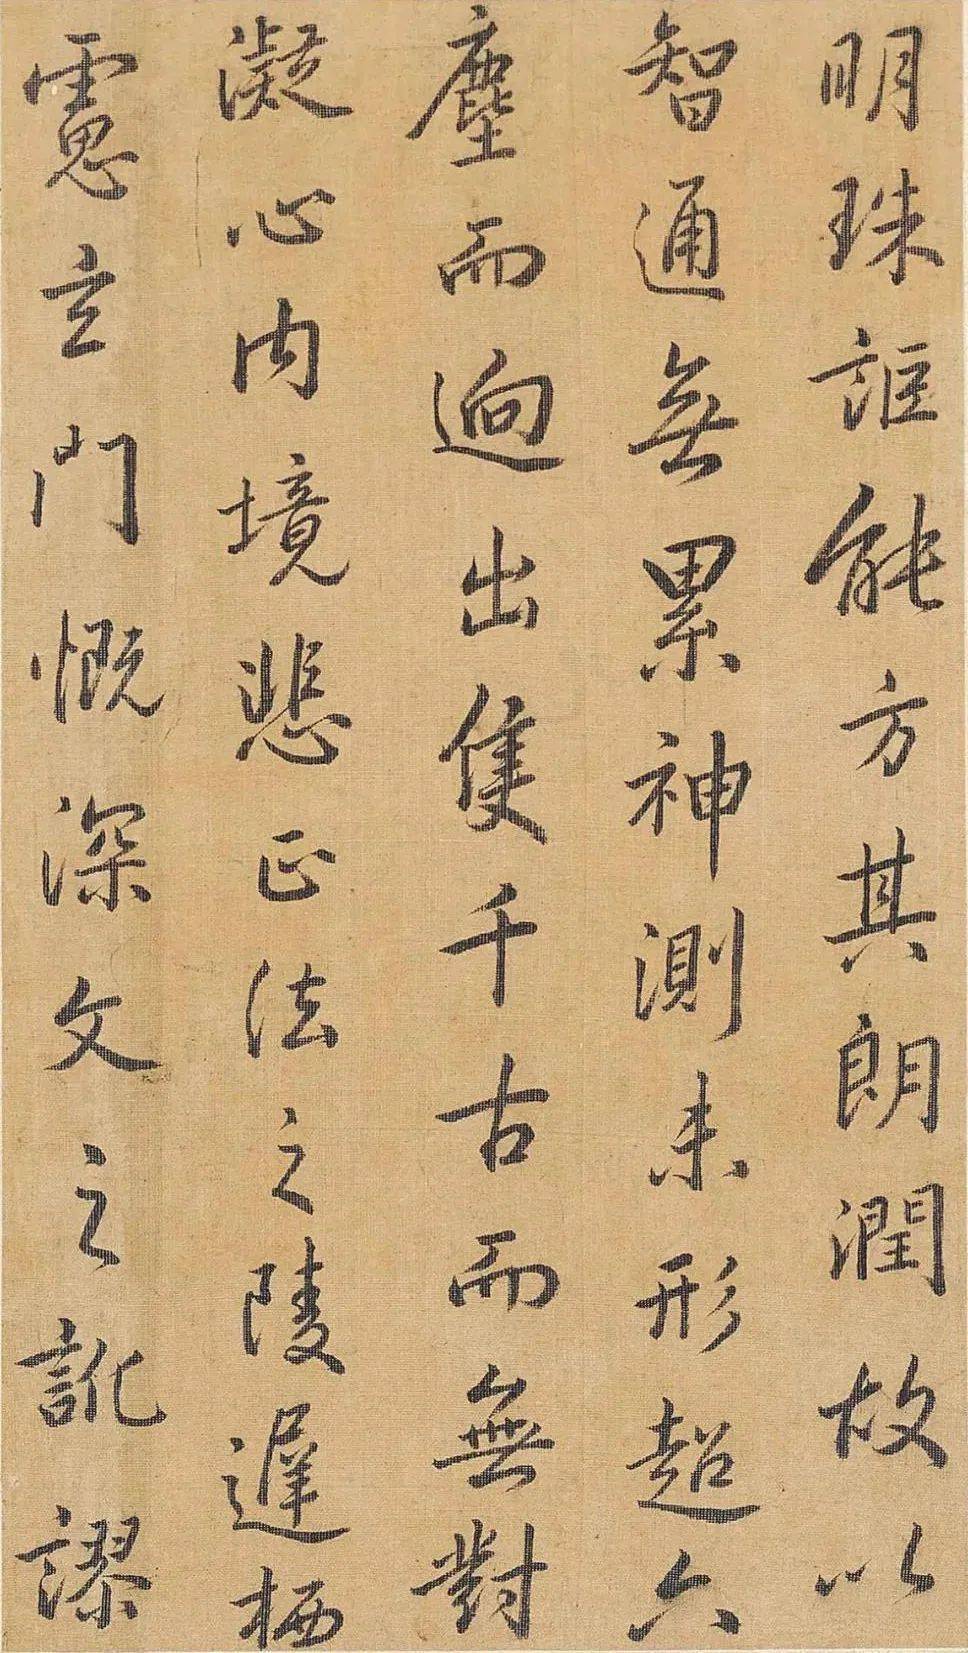 明珠詎能方其朗潤故以
智通無累神測未形超六
塵而逈出隻千古而無對
凝心內境悲正法之陵遲栖
慮玄門慨深文之訛謬